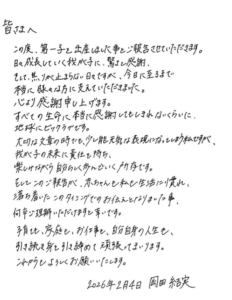 皆さまへ
この度、第一子を出産しました事をご報告させていただきます。
日々成長していく我が子に、驚きと感謝。
そして、焦りが止まらない日々ですが、今日に至るまで
本当に沢山の方に支えていただきました。
心より感謝申し上げます。
すべての生命に本当に感謝してもしきれないくらいに、
地球にビックラブです。
大切な文章の時でも、少し能天気な表現になってしまう私ですが、
我が子の未来に責任を持ち、
楽しみながら自分らしく歩んでいく所存です。
そしてこのご報告が、赤ちゃんも私も生活にり慣れ、
落ち着いたこのタイミングでのお伝えとなりました事、
何卒ご理解いただけますと幸いです。
子育ても、家庭も、お仕事も、自分自身の人生も、
引き続き身を引き締めて頑張ってまいります。
これからもよろしくお願いいたします。
2026年2月4日 岡田結実